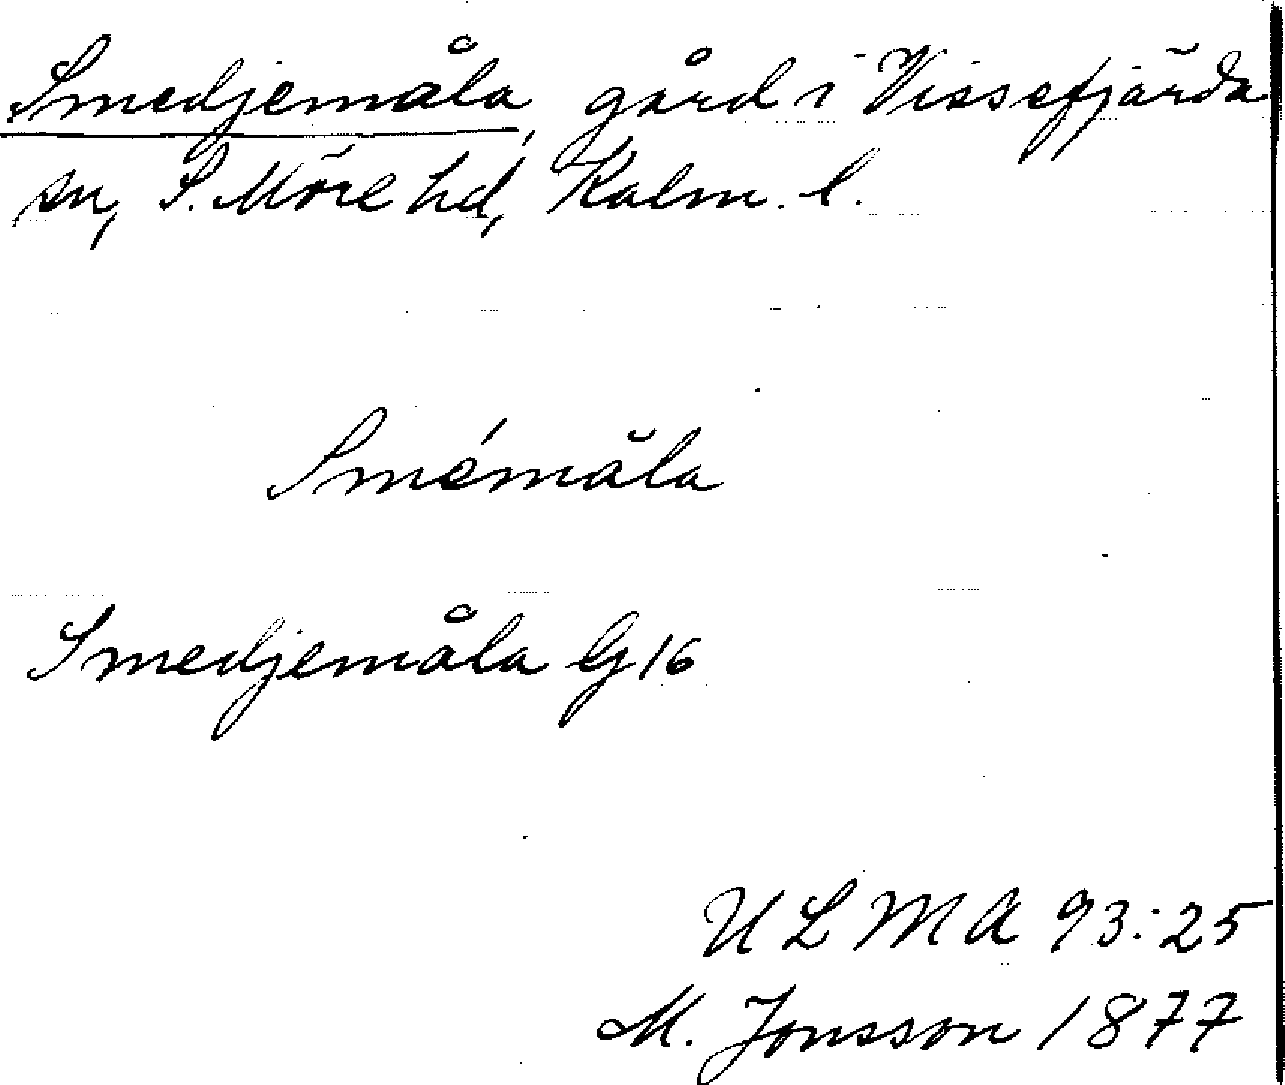 Smedjemåla, gård i Vissefjärda
sn, S. Möre hd, Kalm. l.
Smémåla
Smedjemåla G 16
ULMA 93:25
M. Jonsson 1877